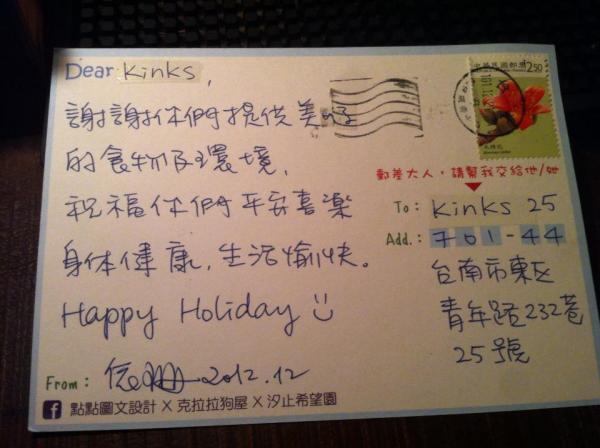 Dear Kinks,
謝謝你們提供美味
的食物及環境,
祝福你們平安喜樂
身体健康,生活愉快。
Happy Holiday
From: 2012.12
點點圖文設計 X 克拉拉狗屋 X 汐止希望園
中華民國郵票
250
郵差大人,請幫我交給他/她
To: Kinks 25
Add.: 701-44
台南市東区
青年路232巷
25號